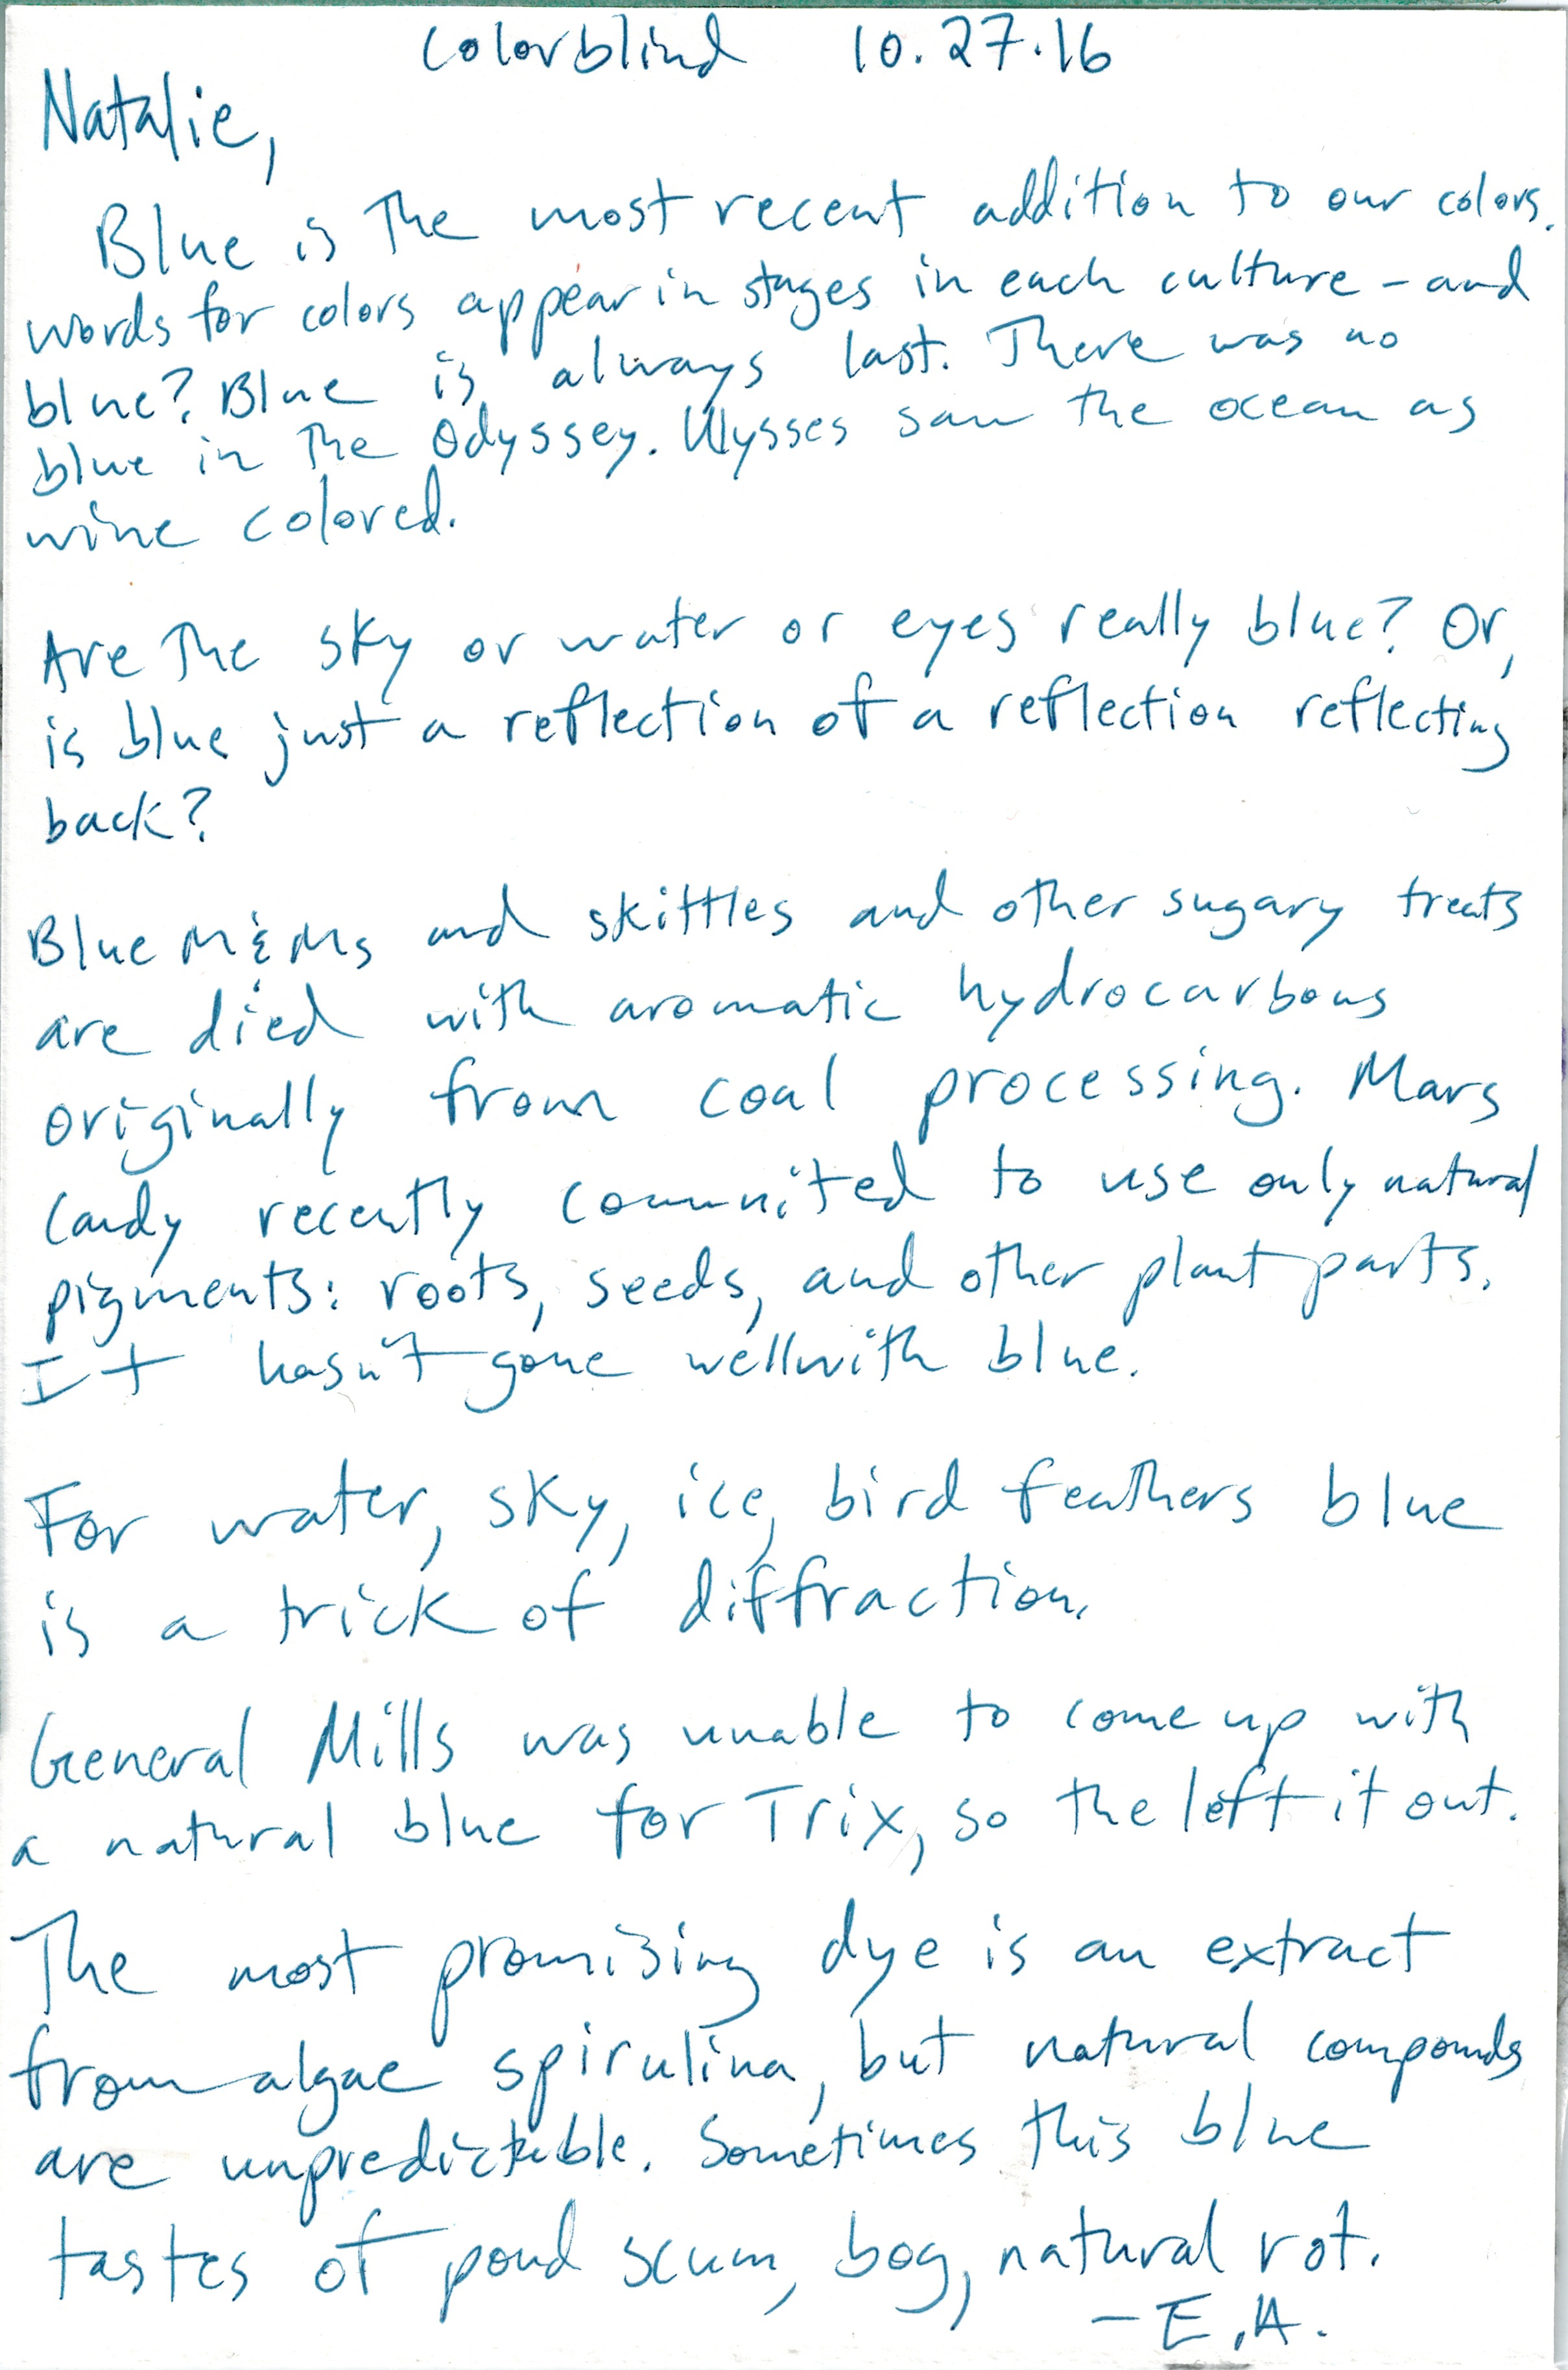 Colorblind 10.27.16
Natalie,
Blue is The most recent addition to our colors.
words for colors appear in stages in each culture - and
blue? Blue is always last. There was no
blue in The Odyssey. Ulysses saw the ocean as
wine colored.
Are The sky or water or eyes really blue? Or,
is blue just a reflection of a reflection reflecting
back?
Blue M&Ms and skittles and other sugary treats
are died with aromatic hydrocarbons
originally from coal processing. Mars
Candy recently commited to use only natural
pigments: roots, seeds, and other plant parts.
It hasn't gone well with blue.
For water, sky, ice, bird feathers blue
is a trick of diffraction.
General Mills was unable to come up with
a natural blue for Trix, so the left it out.
The most promising dye is an extract
from algae spirulina, but natural compounds
are unpredictable. Sometimes this blue
tastes of pond scum, bog, natural rot.
- E.A.